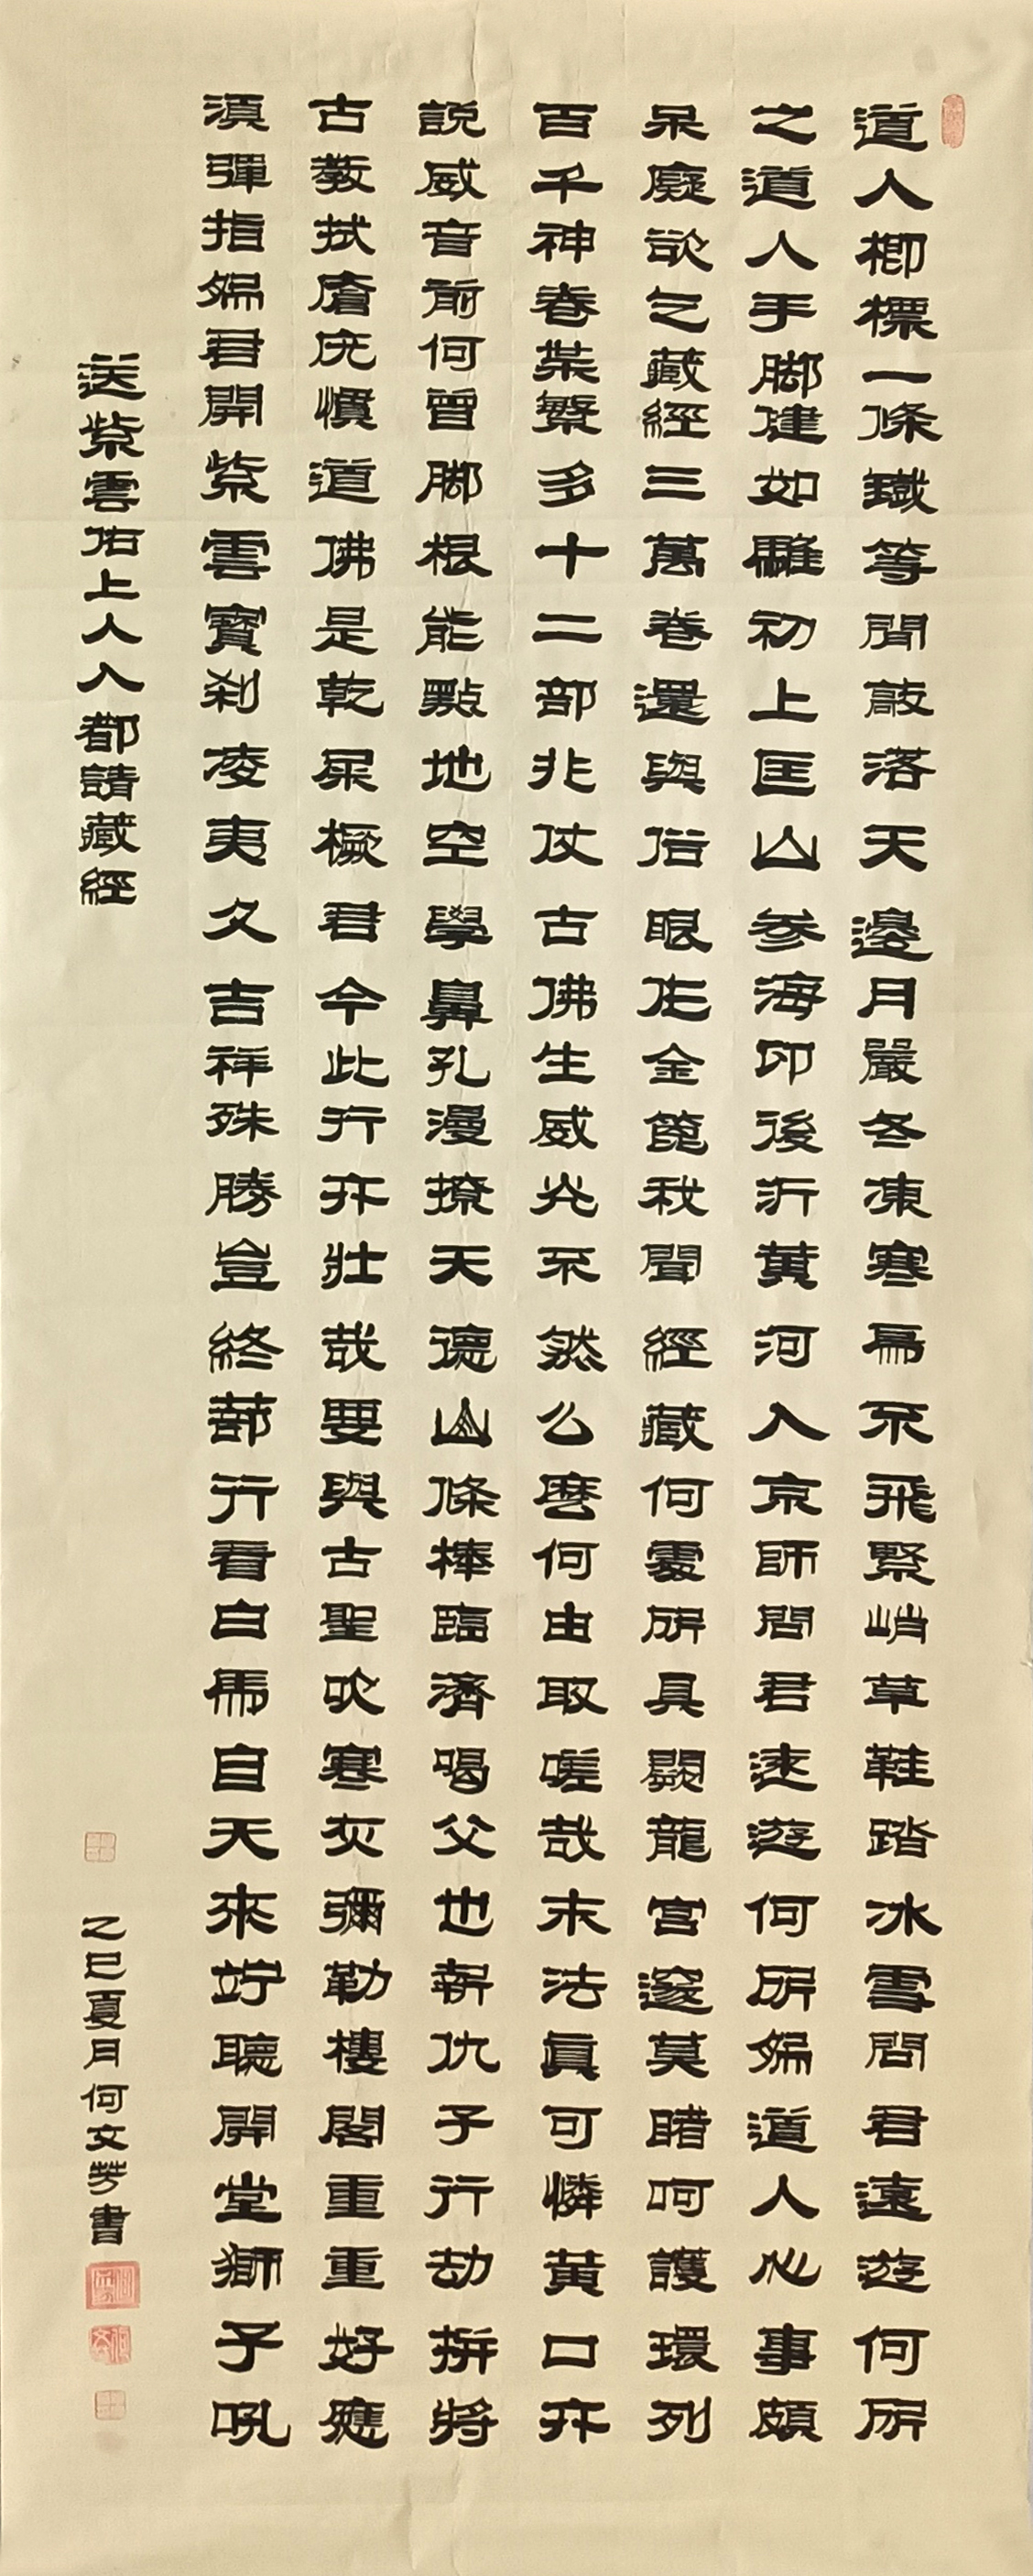 道人楖標一條鐵等閒敲落天邊月嚴冬凍寒鳥不飛緊峭草鞋踏冰雪問君遠遊何所
之道人手腳健如雛初上匡山參海印後泝黃河入京師問君遠遊何所爲道人心事頗
呆癡欲乞藏經三萬卷還與俗眼作金篦我聞經藏何處所具闕龍宮邃莫睹呵護環列
百千神卷葉繁多十二部非仗古佛生威光不然么麼何由取嗟哉末法真可憐黃口亦
說威音前何曾腳根能點地空學鼻孔漫撩天德山條棒臨濟喝父也報仇子行劫拚將
古教拭瘡疣慣道佛是乾屎橛君今此行亦壯哉要與古聖吹寒灰彌勒樓閣重重好應
須彈指爲君開紫雲寶刹凌夷久吉祥殊勝豈終蔀行看白馬自天來竚聽開堂獅子吼
送紫雲佑上人入都請藏經
乙巳夏月何文芳書